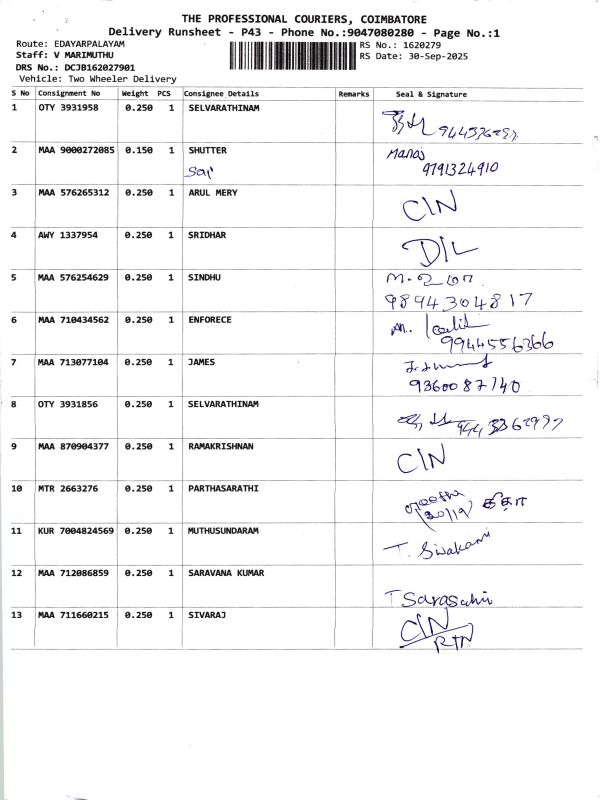 THE PROFESSIONAL COURIERS, COIMBATORE
Delivery Runsheet - P43 - Phone No.:9047080280 - Page No.:1
Route: EDAYARPALAYAM RS No.: 1620279
Staff: V MARIMUTHU RS Date: 30-Sep-2025
DRS No.: DCJB162027901
Vehicle: Two Wheeler Delivery
S No Consignment No Weight PCS Consignee Details Remarks Seal & Signature
1 OTY 3931958 0.250 1 SELVARATHINAM
2 MAA 9000272085 0.150 1 SHUTTER Manoj
9791324910
3 MAA 576265312 0.250 1 ARUL MERY C/N
4 AWY 1337954 0.250 1 SRIDHAR D/L
5 MAA 576254629 0.250 1 SINDHU
9894304817
6 MAA 710434562 0.250 1 ENFORECE
9944556366
7 MAA 713077104 0.250 1 JAMES
9360087140
8 OTY 3931856 0.250 1 SELVARATHINAM
9 MAA 870904377 0.250 1 RAMAKRISHNAN C/N
10 MTR 2663276 0.250 1 PARTHASARATHI
கீதா
11 KUR 7004824569 0.250 1 MUTHUSUNDARAM T. Sivakami
12 MAA 712086859 0.250 1 SARAVANA KUMAR
13 MAA 711660215 0.250 1 SIVARAJ C/N
RTN